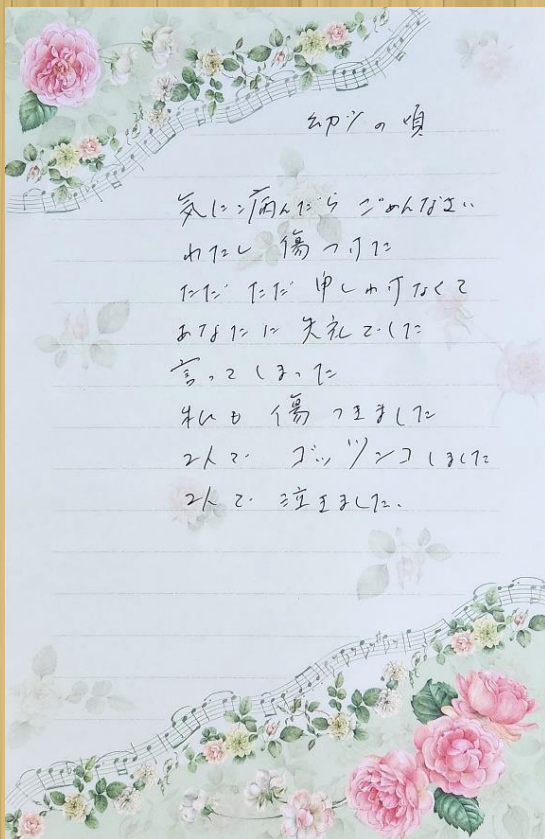 幼少の唄
気に病んだら ごめんなさい
わたし 傷つけた
ただ ただ 申しわけなくて
あなたに 失礼でした
言ってしまった
私も 傷つきました
2人で ゴッツンコしました
2人で 泣きました.